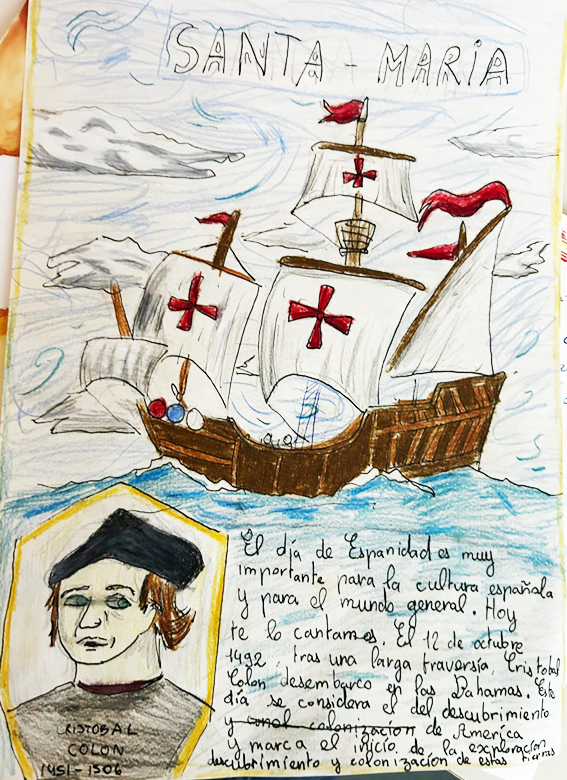 SANTA - MARIA
El día de Espanidad es muy
importante para la cultura española
y para el mundo general. Hoy
te lo cantamos. El 12 de octubre
1492, tras una larga traversía, Cristobal
Colon desembarco en las Bahamas. Este
día se considera el del descubrimiento
y colonización de America
y marca el inicio de la exploración,
descubrimiento y colonización de estas tierras
CRISTOBAL
COLON
1451-1506